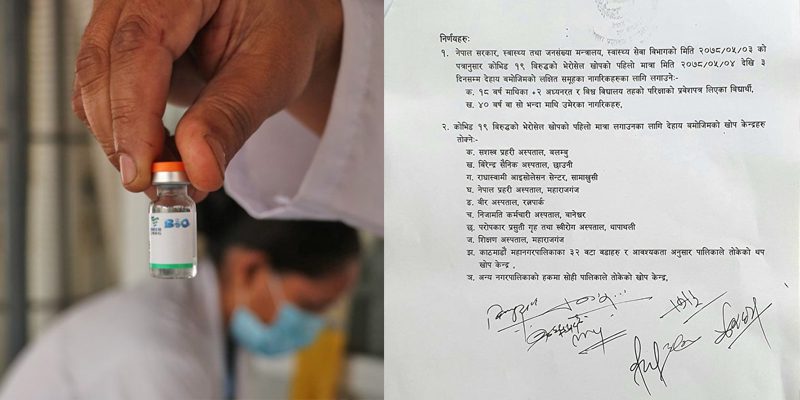 BIO
निर्णयहरुः
१. नेपाल सरकार, स्वास्थ्य तथा जनसंख्या मन्त्रालय, स्वास्थ्य सेवा विभागको मिति २०७८/०५/०३ को
पत्रानुसार कोभिड १९ विरुद्धको भेरोसेल खोपको पहिलो मात्रा मिति २०७८/०५/०४ देखि ३
दिनसम्म देहाय बमोजिमको लक्षित समूहका नागरिकहरुका लागि लगाउनेः-
क. १८ वर्ष माथिका +२ अध्यनरत र विश्व बिद्यालय तहको परिक्षाको प्रवेशपत्र लिएका विद्यार्थी,
ख. ४० वर्ष वा सो भन्दा माथि उमेरका नागरिकहरु,
२. कोभिड १९ विरुद्धको भेरोसेल खोपको पहिलो मात्रा लगाउनका लागि देहाय बमोजिमको खोप केन्द्रहरु
तोक्नेः-
क. सशस्त्र प्रहरी अस्पताल, बलम्बु
ख. बिरेन्द्र सैनिक अस्पताल, छाउनी
ग. राधास्वामी आइसोलेसन सेन्टर, सामाखुसी
घ. नेपाल प्रहरी अस्पताल, महाराजगंज
ङ. वीर अस्पताल, रत्नपार्क
च. निजामति कर्मचारी अस्पताल, बानेश्वर
छ. परोपकार प्रसुती गृह तथा स्त्रीरोग अस्पताल, थापाथली
ज. शिक्षण अस्पताल, महाराजगंज
झ. काठमाडौं महानगरपालिकाका ३२ वटा वडाहरु र आवश्यकता अनुसार पालिकाले तोकेको थप
खोप केन्द्र ,
ञ. अन्य नगरपालिकाको हकमा सोही पालिकाले तोकेको खोप केन्द्र,